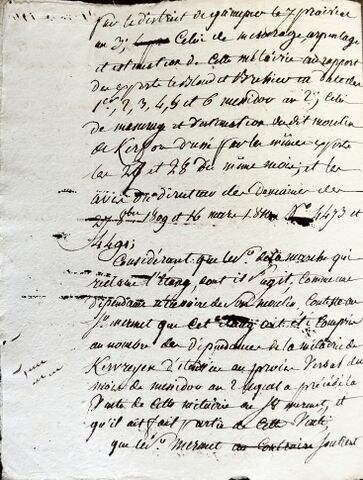 par le district de quimper le 7 prairial
an 3; celui de mesurage, arpentage
et estimation de cette métairie au rapport
des experts le Blond et Brehier en date des
1er, 2, 3, 4, 5 et 6 messidor an 2; celui
de mesurage et d'estimation du dit moulin
de par les mêmes experts
les 27 et 28 du même mois; et les
avis du directeur des Domaines des
27 8bre 1809 et 16 mars N.os 4473 et
4491;
Considérant que le Sr. de la marche qui
réclame l'étang dont il s'agit, comme une
dépendance nécessaire de son moulin conteste au
Sr. mermet que cet étang ait été compris
au nombre des dépendances de la métairie de
au procès verbal du
mois de messidor an 2 lequel a précédé la
vente de cette métairie au Sr mermet, et
qu'il ait fait partie de cette vente;
que le Sr. mermet au contraire soutient